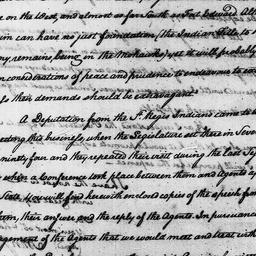 on the West, and almost as far South as Fort Edward. Alt
in can have no just foundation (the Indian Title to
ny, remains, being in the Mohawks) yet it will probably
considerations of peace and prudence to endeavour to
ss their demands should be extravagant
A Deputation from the St Regis Indians came to
eeting that business, when the Legislature sat there in
ninety four and they repeated their visit during the last
when a Conference took place between them and Agents of
State, You will find herewith enclosed copies of the speech from
them, their answer and the reply of the Agents. In pursuance
agement of the Agents that we would meet and treat with